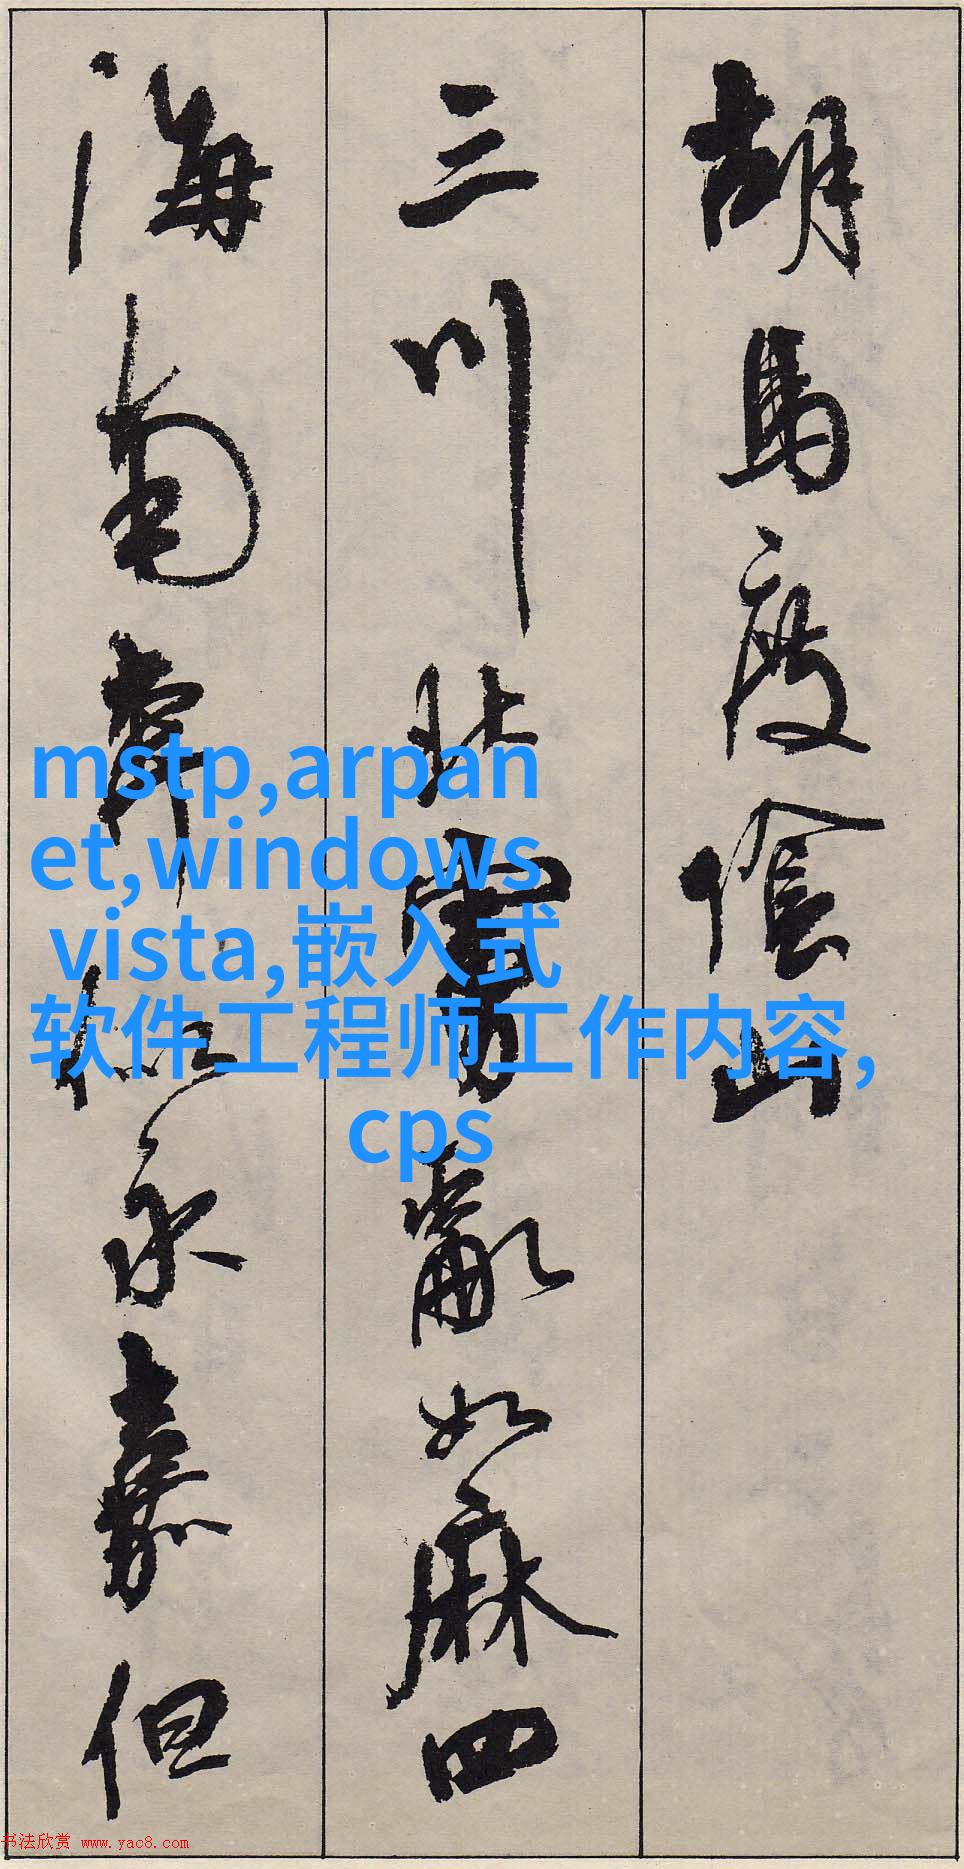 胡馬度陰山
三川北虜亂如麻四
海南奔似永嘉但
mstp,arpan
et,windows
vista,嵌入式
软件工程师工作内容,
cps
书法欣赏 www.yac8.com